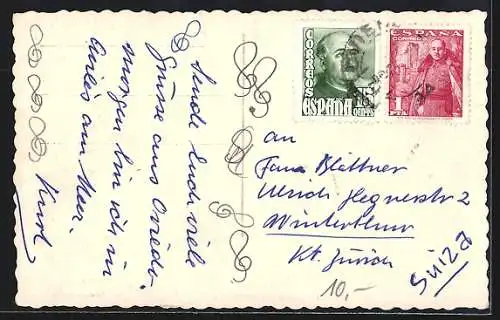 Sende Euch viele
Grüsse aus Oviedo.
morgen bin ich in
am Meer.
Kurt
CORREOS
ESPAÑA
ESPAÑA
CORREOS
1
PTA
an
Fam. Blättner
Ulrich Hegnerstr 2
Winterthur
Kt. Zürich
Suiza
10,-